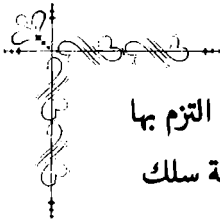 التزم بها
ة سلك